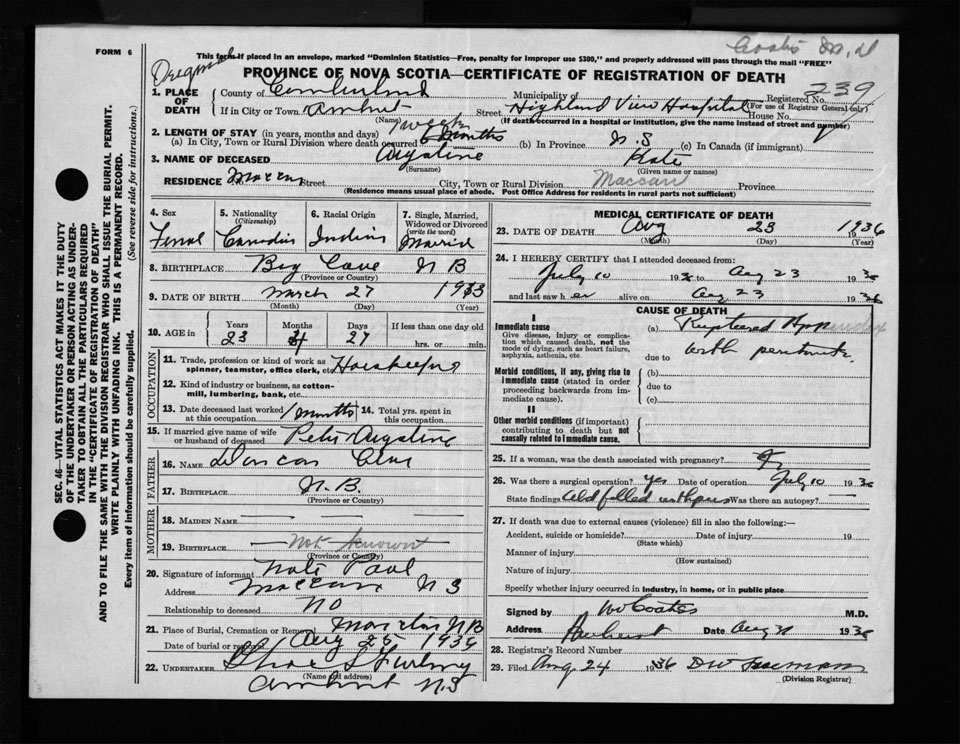 FORM 6
This form if placed in an envelope, marked "Dominion Statistics—Free, penalty for improper use $300," and properly addressed will pass through the mail "FREE"
PROVINCE OF NOVA SCOTIA—CERTIFICATE OF REGISTRATION OF DEATH
Registered No. 239
(For use of Registrar General only)
1. PLACE OF DEATH
County of Cumberland Municipality of
If in City or Town Amherst Street Highland View Hospital House No.
(Name) (If death occurred in a hospital or institution, give the name instead of street and number)
2. LENGTH OF STAY (in years, months and days)
1 week
(a) In City, Town or Rural Division where death occurred 6 months (b) In Province N.S (c) In Canada (if immigrant)
3. NAME OF DECEASED Augstine Kate
(Surname) (Given name or names)
RESIDENCE Maccan Street City, Town or Rural Division Maccan Province
(Residence means usual place of abode. Post Office Address for residents in rural parts not sufficient)
4. Sex
5. Nationality (Citizenship)
6. Racial Origin
7. Single, Married, Widowed or Divorced (write the word)
Femal Canadian Indian Married
8. BIRTHPLACE Big Cove N B
(Province or Country)
9. DATE OF BIRTH March 27 1913
(Month) (Day) (Year)
10. AGE in
Years Months Days If less than one day old
23 4 27 hrs. or min.
OCCUPATION
11. Trade, profession or kind of work as spinner, teamster, office clerk, etc.
12. Kind of industry or business, as cotton-mill, lumbering, bank, etc.
13. Date deceased last worked at this occupation 1 months 14. Total yrs. spent in this occupation
15. If married give name of wife or husband of deceased Peter Augstine
FATHER
16. NAME
17. BIRTHPLACE N.B.
(Province or Country)
MOTHER
18. MAIDEN NAME
19. BIRTHPLACE not known
(Province or Country)
20. Signature of informant Paul
Address Maccan N S
Relationship to deceased NO
21. Place of Burial, Cremation or Removal N B
Date of burial or removal Aug 25 1936
22. UNDERTAKER
(Name and address)
Amherst N.S
MEDICAL CERTIFICATE OF DEATH
23. DATE OF DEATH Aug 23 1936
(Month) (Day) (Year)
24. I HEREBY CERTIFY that I attended deceased from:
July 10 1936 to Aug 23 1936
and last saw her alive on Aug 23 1936
CAUSE OF DEATH
I
Immediate cause
Give disease, injury or complication which caused death, not the mode of dying, such as heart failure, asphyxia, asthenia, etc
(a) Ruptured Appendix
due to with peritonitis
Morbid conditions, if any, giving rise to immediate cause (stated in order proceeding backwards from immediate cause).
(b)
due to
(c)
II
Other morbid conditions (if important) contributing to death but not causally related to immediate cause.
25. If a woman, was the death associated with pregnancy?
26. Was there a surgical operation? yes Date of operation July 10 1936
State findings Abd filled with pus Was there an autopsy? —
27. If death was due to external causes (violence) fill in also the following:—
Accident, suicide or homicide? Date of injury 19
(State which)
Manner of injury
(How sustained)
Nature of injury
Specify whether injury occurred in industry, in home, or in public place
Signed by Coates M.D.
Address Amherst Date Aug 1936
28. Registrar's Record Number
29. Filed Aug. 24 1936
(Division Registrar)
SEC. 46—VITAL STATISTICS ACT MAKES IT THE DUTY
OF THE UNDERTAKER OR PERSON ACTING AS UNDER-
TAKER TO OBTAIN ALL THE PARTICULARS REQUIRED
IN THE "CERTIFICATE OF REGISTRATION OF DEATH"
AND TO FILE THE SAME WITH THE DIVISION REGISTRAR WHO SHALL ISSUE THE BURIAL PERMIT.
WRITE PLAINLY WITH UNFADING INK. THIS IS A PERMANENT RECORD.
Every item of information should be carefully supplied. (See reverse side for instructions.)